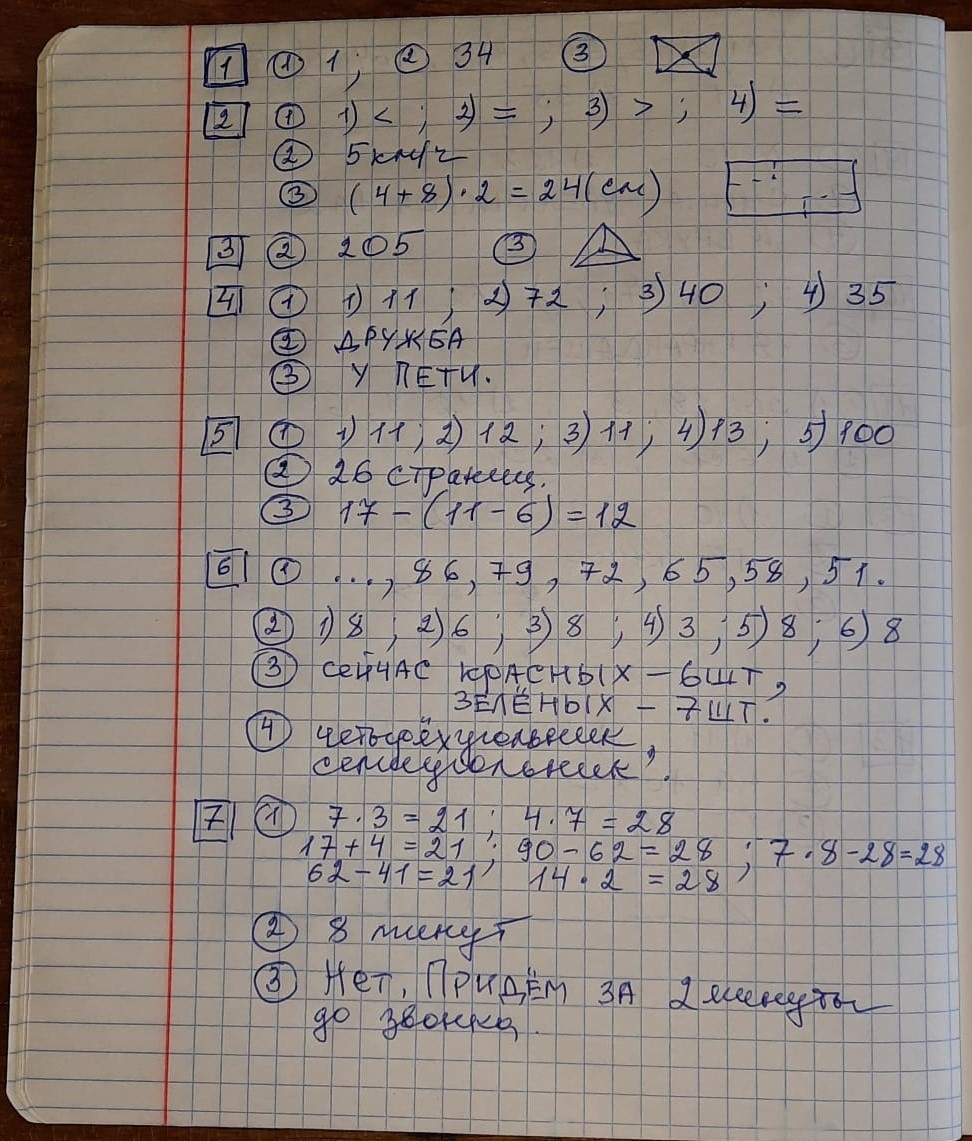 1 ① 1; ② 34 ③
2 ① 1) < ; 2) = ; 3) > ; 4) =
② 5 км/ч
③ (4+8)·2 = 24 (см)
3 ② 205 ③
4 ① 1) 11 ; 2) 72 ; 3) 40 ; 4) 35
② ДРУЖБА
③ У ПЕТИ.
5 ① 1) 11 ; 2) 12 ; 3) 11 ; 4) 13 ; 5) 100
② 26 страниц.
③ 17 – (11 – 6) = 12
6 ① ..., 86, 79, 72, 65, 58, 51.
② 1) 8 ; 2) 6 ; 3) 8 ; 4) 3 ; 5) 8 ; 6) 8
③ СЕЙЧАС КРАСНЫХ – 6 ШТ,
ЗЕЛЁНЫХ – 7 ШТ.
④ четырёхугольник,
семиугольник.
7 ① 7·3 = 21 ; 4·7 = 28
17+4 = 21 ; 90–62 = 28 ; 7·8–28=28
62–41=21 14·2 = 28
② 8 минут
③ Нет. Придём за 2 минуты
до звонка.